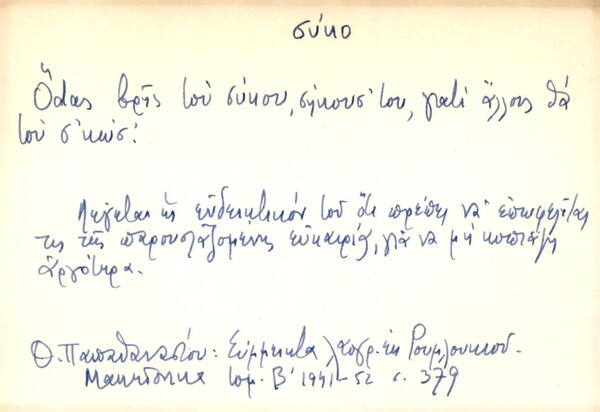 σύκο
Ὅλας βρῇς τοὺ σύκου, σήκουσ' του, γιατὶ ἄλλους θὰ
τοὺ σ'κώσ'.
Λέγεται ὡς ἐνδεικτικὸν τοῦ ὅτι πρέπει νὰ ἐπωφελῆται
τις τῆς παρουσιαζομένης εὐκαιρίας, γιὰ νὰ μὴ
ἀργότερα.
Θ. Παπαθανασίου: Σύμμεικτα λαογρ. ἐκ Ρουμλουκιοῦ.
Μακεδονικὰ τομ. Β' 1941-52 σ. 379